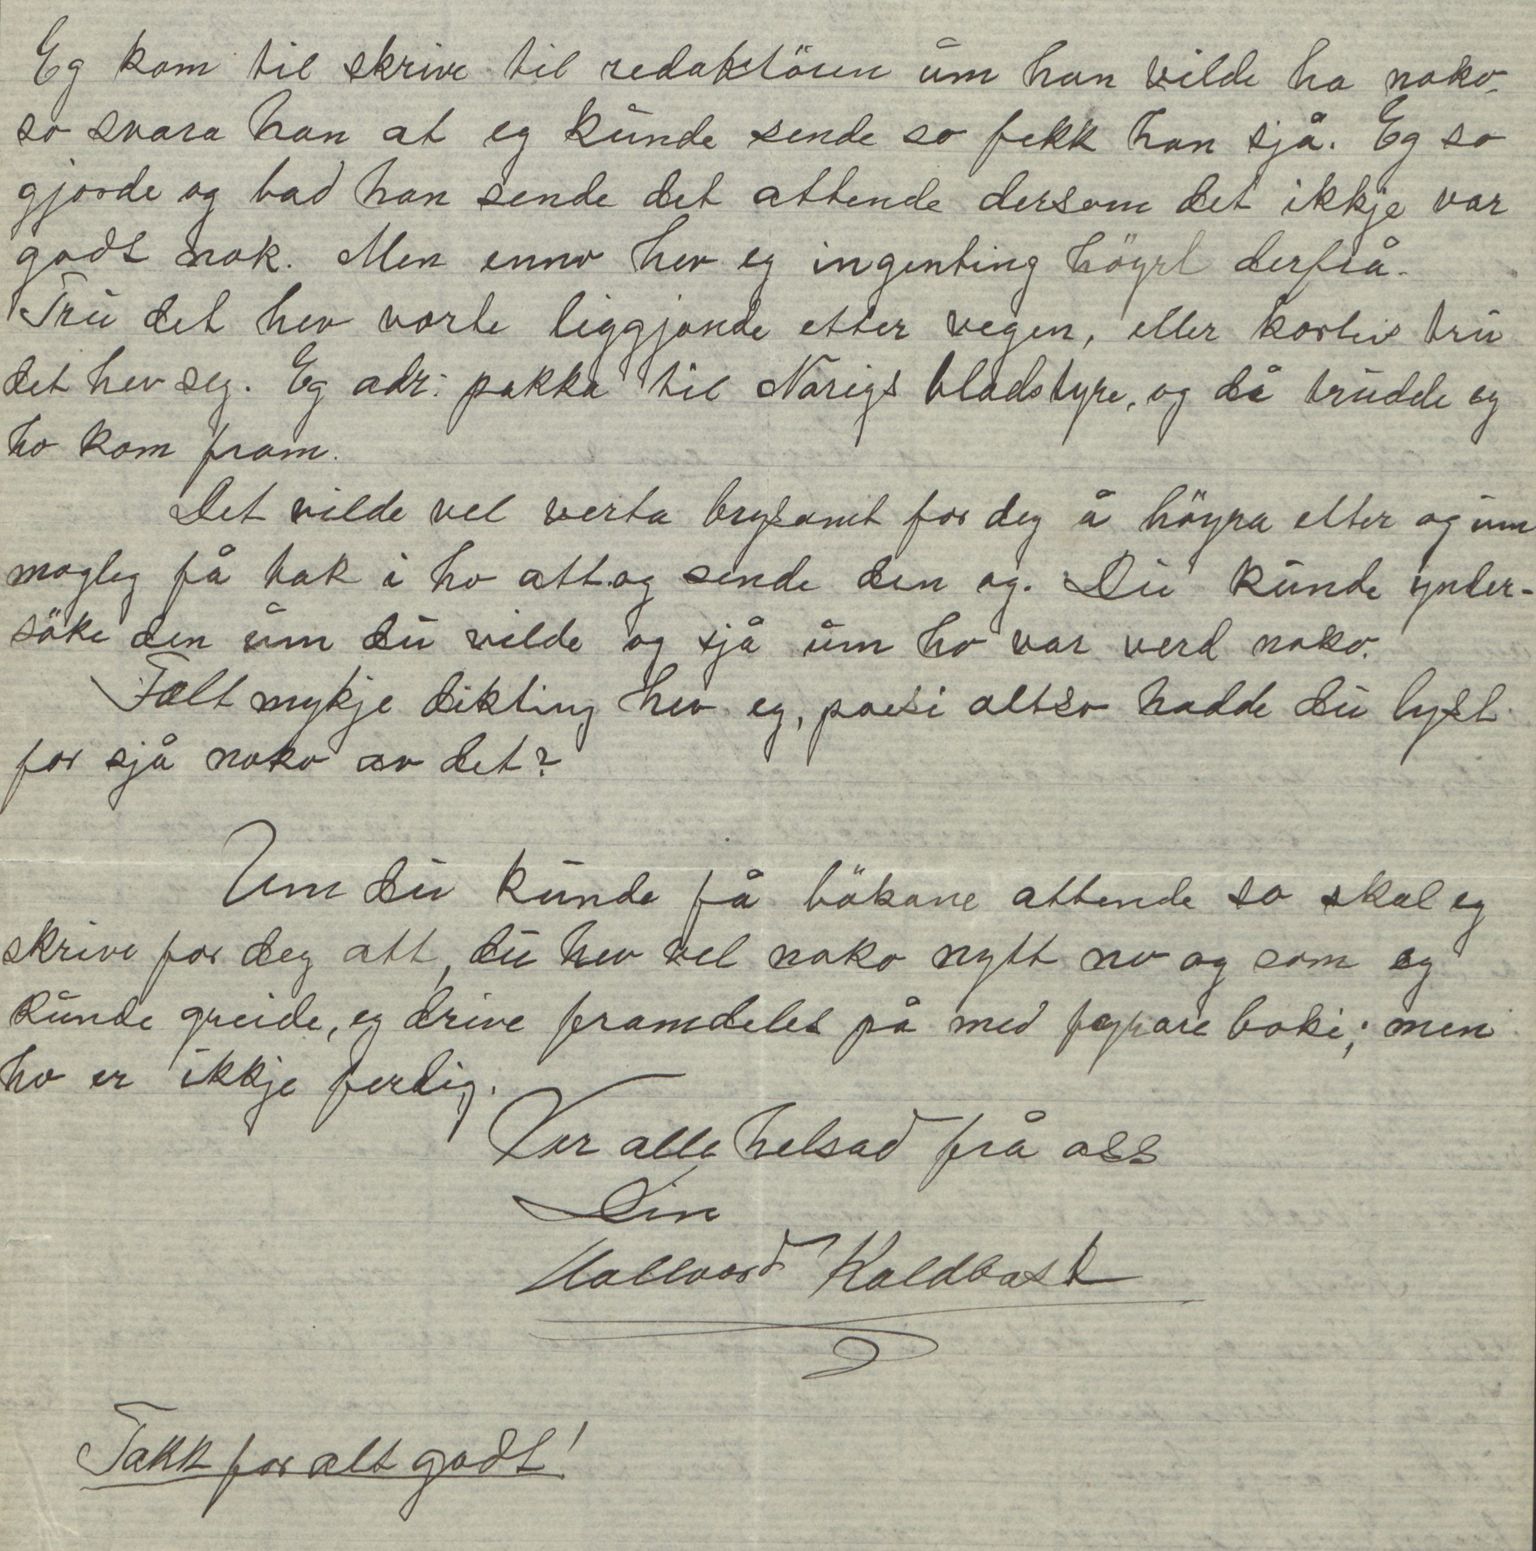 Eg kom til skrive til redaktören um han vilde ha noko,
so svara han at eg kunde sende so fekk han sjå. Eg so
gjorde og bad han sende det attende dersom det ikkje var
godt nok. Men enno hev eg ingenting höyrt derfrå.
Tru det hev vorte liggjande etter vegen, eller korleis tru
det hev seg. Eg adr: pakka til Norigs bladstyre, og då trudde eg
ho kom fram.
Det vilde vel verta brysamt for deg å höyra etter og um
mogleg få tak i ho att og sende den og. Du kunde under-
söke den um du vilde og sjå um ho var verd noko.
Fælt mykje dikting hev eg, poesi altso hadde du lyst
for sjå noko av det?
Um du kunde få bökane attende so skal eg
skrive for deg att, du hev vel noko nytt no og som eg
kunde greide, eg drive framdeles på med fyrare boki; men
ho er ikkje ferdig.
Ver alle helsad frå oss
Din
Hallvard Kaldbast
Takk for alt godt!